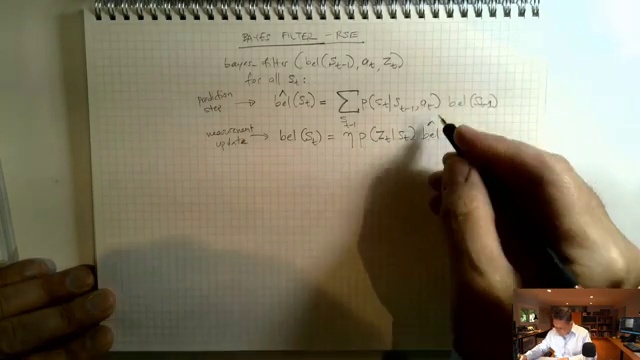 BAYES FILTER - RSE
bayes_filter (bel(s_{t-1}), a_t, z_t)
for all s_t:
prediction step → bel^(s_t) = Σ_{s_{t-1}} p(s_t|s_{t-1}, a_t) bel(s_{t-1})
measurement update → bel(s_t) = η p(z_t|s_t) bel^